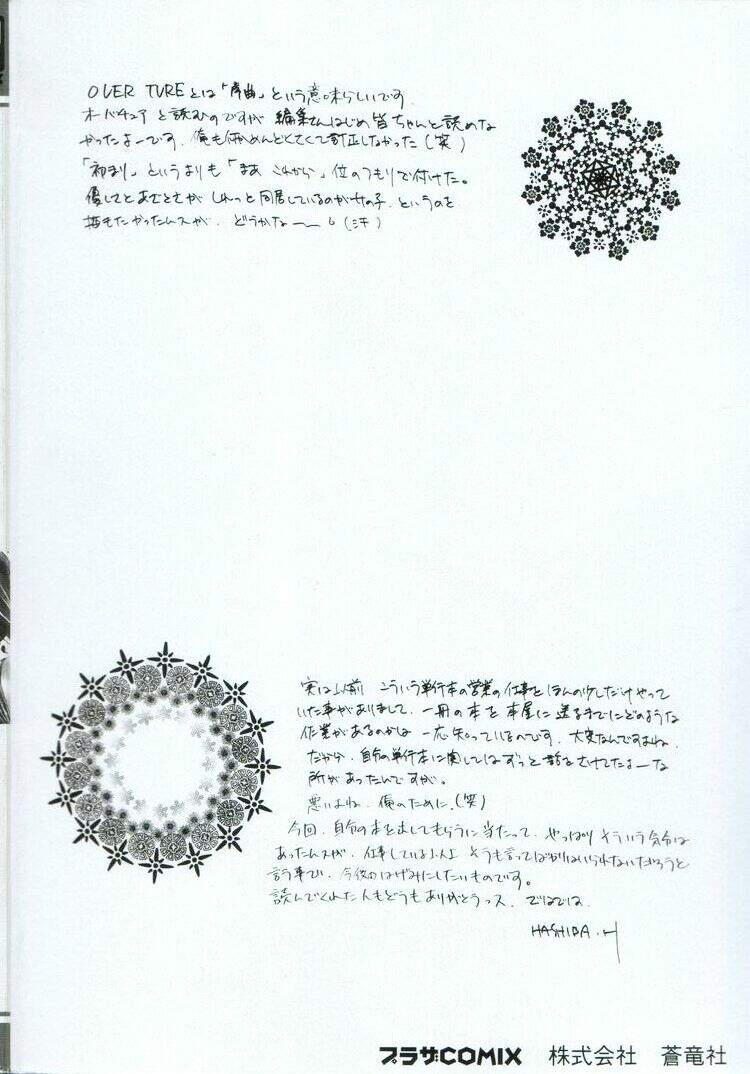 OVER TUREとは「序曲」という意味らしいです.
オーバチュアと読むのですが 編集さんはじめ皆ちゃんと読めな
かったよーです. 俺も何かめんどくさくて訂正しなかった(笑)
「初まり」というよりも「まあ これから」位のつもりで付けた。
しれっと同居しているのが女の子. というのを
描きたかったんスが. どうかなー (汗)
実は以前 こういう単行本の営業の仕事をほんの少しだけやって
いた事がありまして. 一冊の本を本屋に送るまでにどのような
作業があるのかは 一応知っているのです. 大変なんですよね.
だから. 自分の単行本に関してはずっと話をさけてたよーな
所があったんですが。
悪いよね. 俺のために.(笑)
今回. 自分の本を出してもらうに当たって. やっぱり そういう気分は
あったんスが. 仕事している以上 そうも言ってばかりはいられないだろうと
言う事で. 今後のはげみにしたいものです。
読んでくれた人もどうもありがとうっス. ではでは.
HASHIBA.H
プラザCOMIX 株式会社 蒼竜社